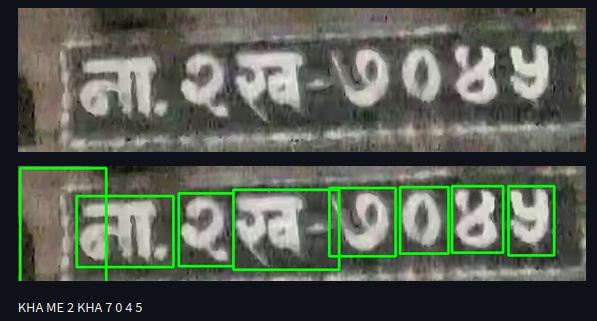 ना. २ख-७०४५
ना. २ख-७०४५
KHA ME 2 KHA 7 0 4 5